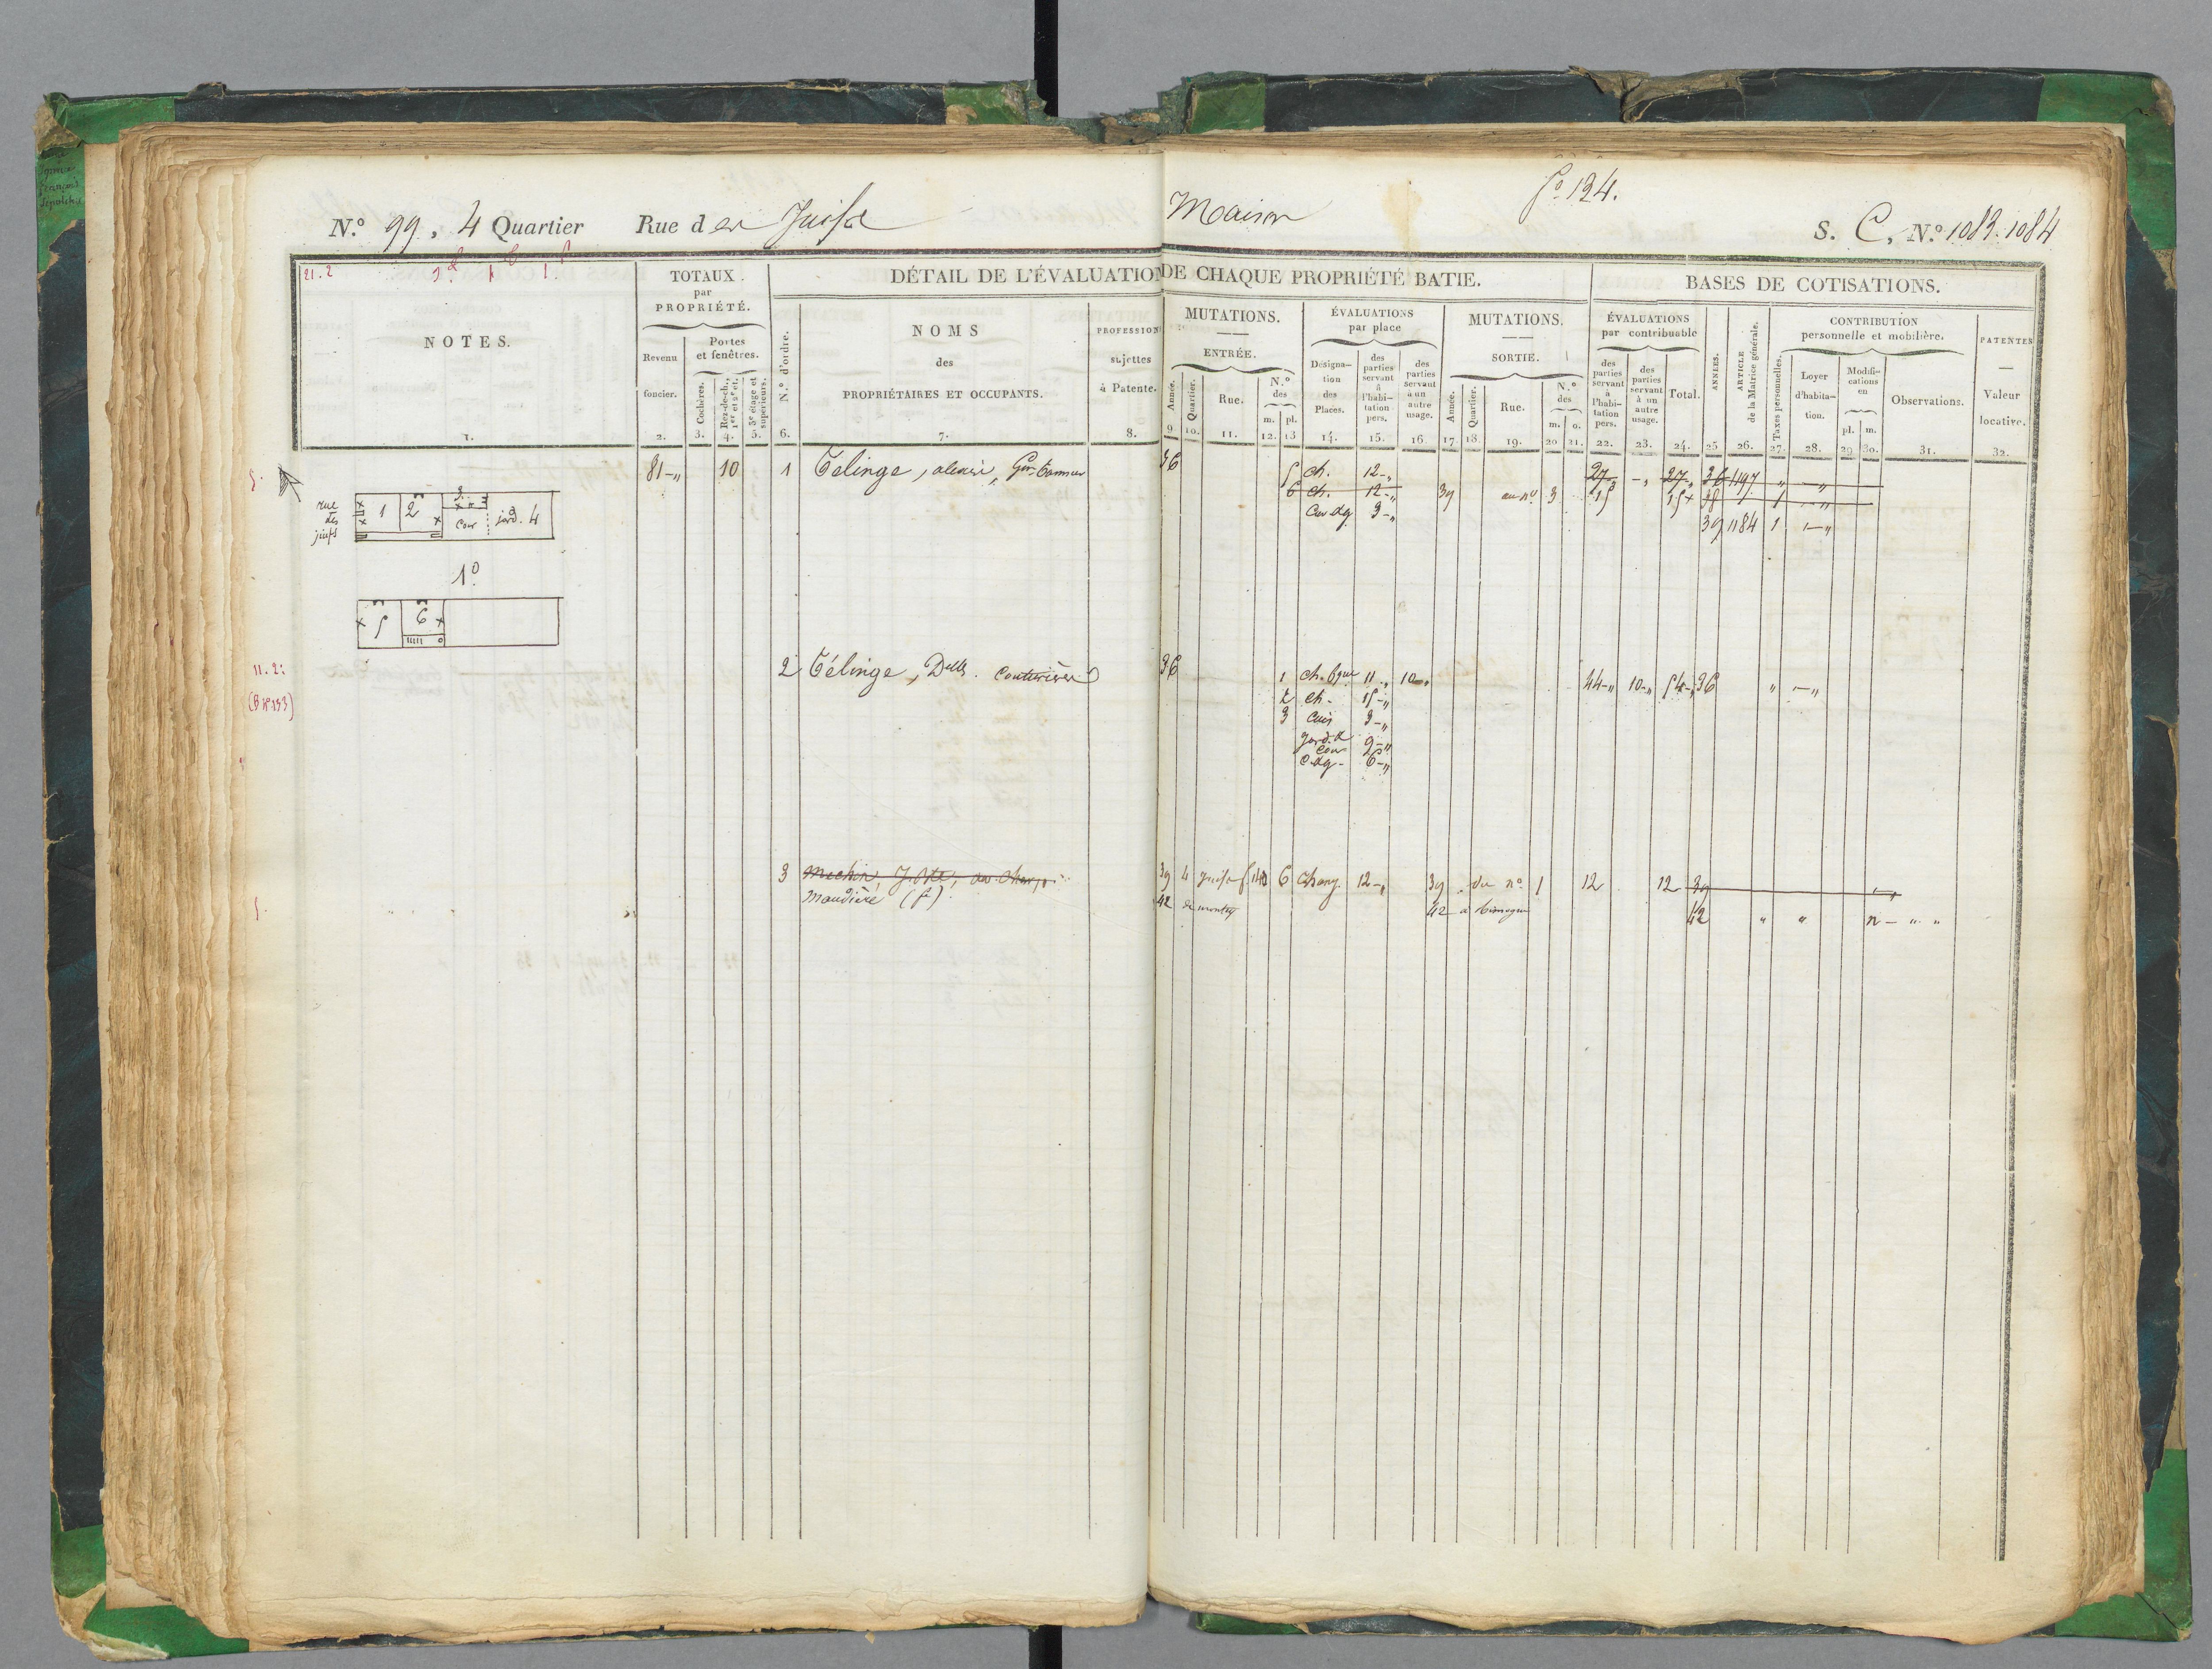 N.º 99, 4 Quartier Rue des Juifs
Maison
fº 124.
S. C, N.º 1083. 1084
21. 2
NOTES.
1.
TOTAUX
par
PROPRIÉTÉ.
Revenu
foncier.
2.
Portes
et fenêtres.
Cochères.
3.
Rez-de-ch.,
1er et 2e ét.
4.
3e étage et
supérieurs.
5.
DÉTAIL DE L'ÉVALUATION DE CHAQUE PROPRIÉTÉ BATIE.
N.º d'ordre.
6.
NOMS
des
PROPRIÉTAIRES ET OCCUPANTS.
7.
PROFESSIONS
sujettes
à Patente.
8.
MUTATIONS.
ENTRÉE.
Année.
9
Quartier.
10.
Rue.
11.
N.º
des
m. pl.
12. 13
ÉVALUATIONS
par place
Désigna-
tion
des
Places.
14.
des
parties
servant
à
l'habi-
tation
pers.
15.
des
parties
servant
à un
autre
usage.
16.
MUTATIONS.
SORTIE.
Année.
17.
Quartier.
18.
Rue.
19.
N.º
des
m. o.
20 21.
BASES DE COTISATIONS.
ÉVALUATIONS
par contribuable
des
parties
servant
à
l'habi-
tation
pers.
22.
des
parties
servant
à un
autre
usage.
23.
Total.
24.
ANNÉES.
25
ARTICLE
de la Matrice générale.
26.
CONTRIBUTION
personnelle et mobilière.
Taxes personnelles.
27.
Loyer
d'habita-
tion.
28.
Modifi-
cations
en
pl. m.
29 30.
Observations.
31.
PATENTES
Valeur
locative.
32.
81-" 10 1 Télinge, alexis, Gon. tanneur 36
5 ch. 12-"
27 -" 27-" 36 1497 " -"
6 ch. 12-" 39 au nº 3 15 15 38 1
Cav dg 3-"
39 1184 1 -"
rue
des
juifs
1 2 3 cour jard. 4
1º
5 6
11. 2:
2 Télinge, Delle. couturière 36
1 ch. 11-" 10-" 44-" 10-" 54-" 36 " -"
2 ch. 15-"
3 Cuis 9-"
jard. &
cour
c. dg. 6-"
3 Mechin
39 4 Juifs 140 6 Chang. 12-" 39 du nº 1 12 12 39
Maudière (fe) 42 42 à 42 " " n - " "